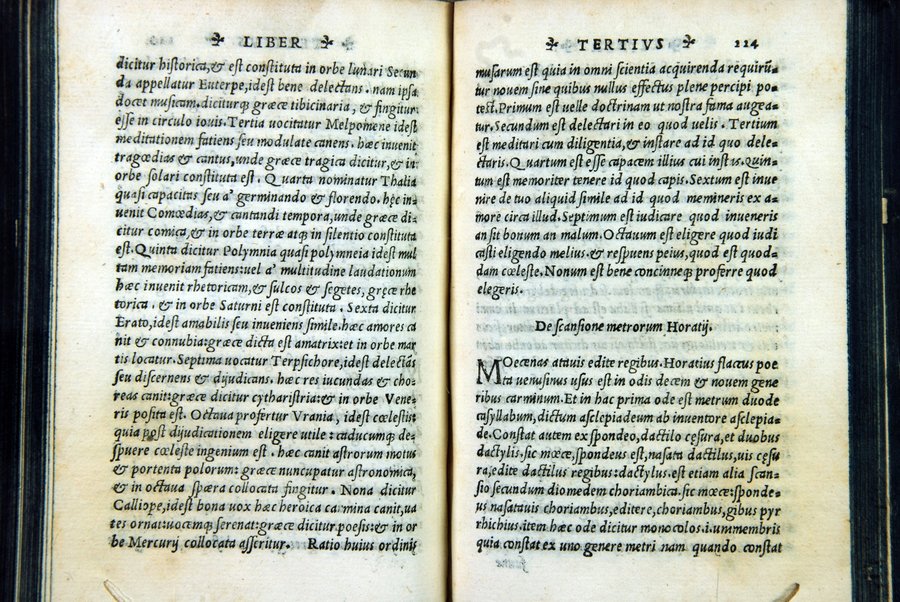 LIBER
dicitur historica,& est constituta in orbe lunari Secun
da appellatur Euterpe,idest bene delectans. nam ipsa
docet musicam.diciturq; græce tibicinaria, & fingitur
esse in circulo iouis.Tertia uocitatur Melpomene idest
meditationem fatiens seu modulate canens. hæc inuenit
tragœdias & cantus,unde græce tragica dicitur,& in
orbe solari constituta est. Quarta nominatur Thalia
quasi capacitas seu a' germinando & florendo. hęc in
uenit Comœdias,& cantandi tempora,unde græce di
citur comica,& in orbe terræ atq; in silentio constituta
est. Quinta dicitur Polymnia quasi polymneia idest mul
tam memoriam fatiens:uel a' multitudine laudationum
hæc inuenit rhetoricam,& sulcos & segetes, gręce rhe
torica. & in orbe Saturni est constituta. Sexta dicitur
Erato,idest amabilis seu inueniens simile.hæc amores ca
nit & connubia:græce dicta est amatrix:et in orbe mar
tis locatur. Septima uocatur Terpsichore,idest delectās
seu discernens & dijudicans. hæc res iucundas & cho
reas canit:græce dicitur cytharistria:& in orbe Vene
ris posita est. Octaua profertur Vrania, idest cœlestis:
quia post dijudicationem eligere utile: caducumq; de
spuere cœleste ingenium est. hæc canit astrorum motus
& portenta polorum: græce nuncupatur astronomica,
& in octaua spæra collocata fingitur. Nona dicitur
Calliope,idest bona uox hæc heroica carmina canit,ua
tes ornat:uocemq; serenat:græce dicitur poesis:& in or
be Mercurij collocata asscritur. Ratio huius ordinis
TERTIVS 224
musarum est quia in omni scientia acquirenda requirū
tur nouem sine quibus nullus effectus plene percipi po
test.Primum est uelle doctrinam ut nostra fama augea
tur.Secundum est delectari in eo quod uelis. Tertium
est meditari cum diligentia,& instare ad id quo dele
ctaris.Quartum est esse capacem illius cui instas.Quin
tum est memoriter tenere id quod capis.Sextum est inue
nire de tuo aliquid simile ad id quod memineris ex a
more circa illud.Septimum est iudicare quod inueneris
an sit bonum an malum.Octauum est eligere quod iudi
casti eligendo melius.& respuens peius,quod est quod
dam cœleste.Nonum est bene concinneq; proferre quod
elegeris.
De scansione metrorum Horatij.
MOecenas atauis edite regibus.Horatius flaccus poe
ta uenusinus usus est in odis decem & nouem gene
ribus carminum.Et in hac prima ode est metrum duode
casyllabum,dictum asclepiadeum ab inuentore asclepia
de.Constat autem ex spondeo,dactilo cęsura,et duobus
dactylis.sic mœce,spondeus est,nasata dactilus,uis cęsu
ra,edite dactilus regibus:dactylus.est etiam alia scan
sio secundum diomedem choriambica.sic mœce:sponde
us nasatauis choriambus,editere,choriambus,gibus pyr
rhichius.item hæc ode dicitur monocolos.i.unimembris
quia constat ex uno genere metri nam quando constat